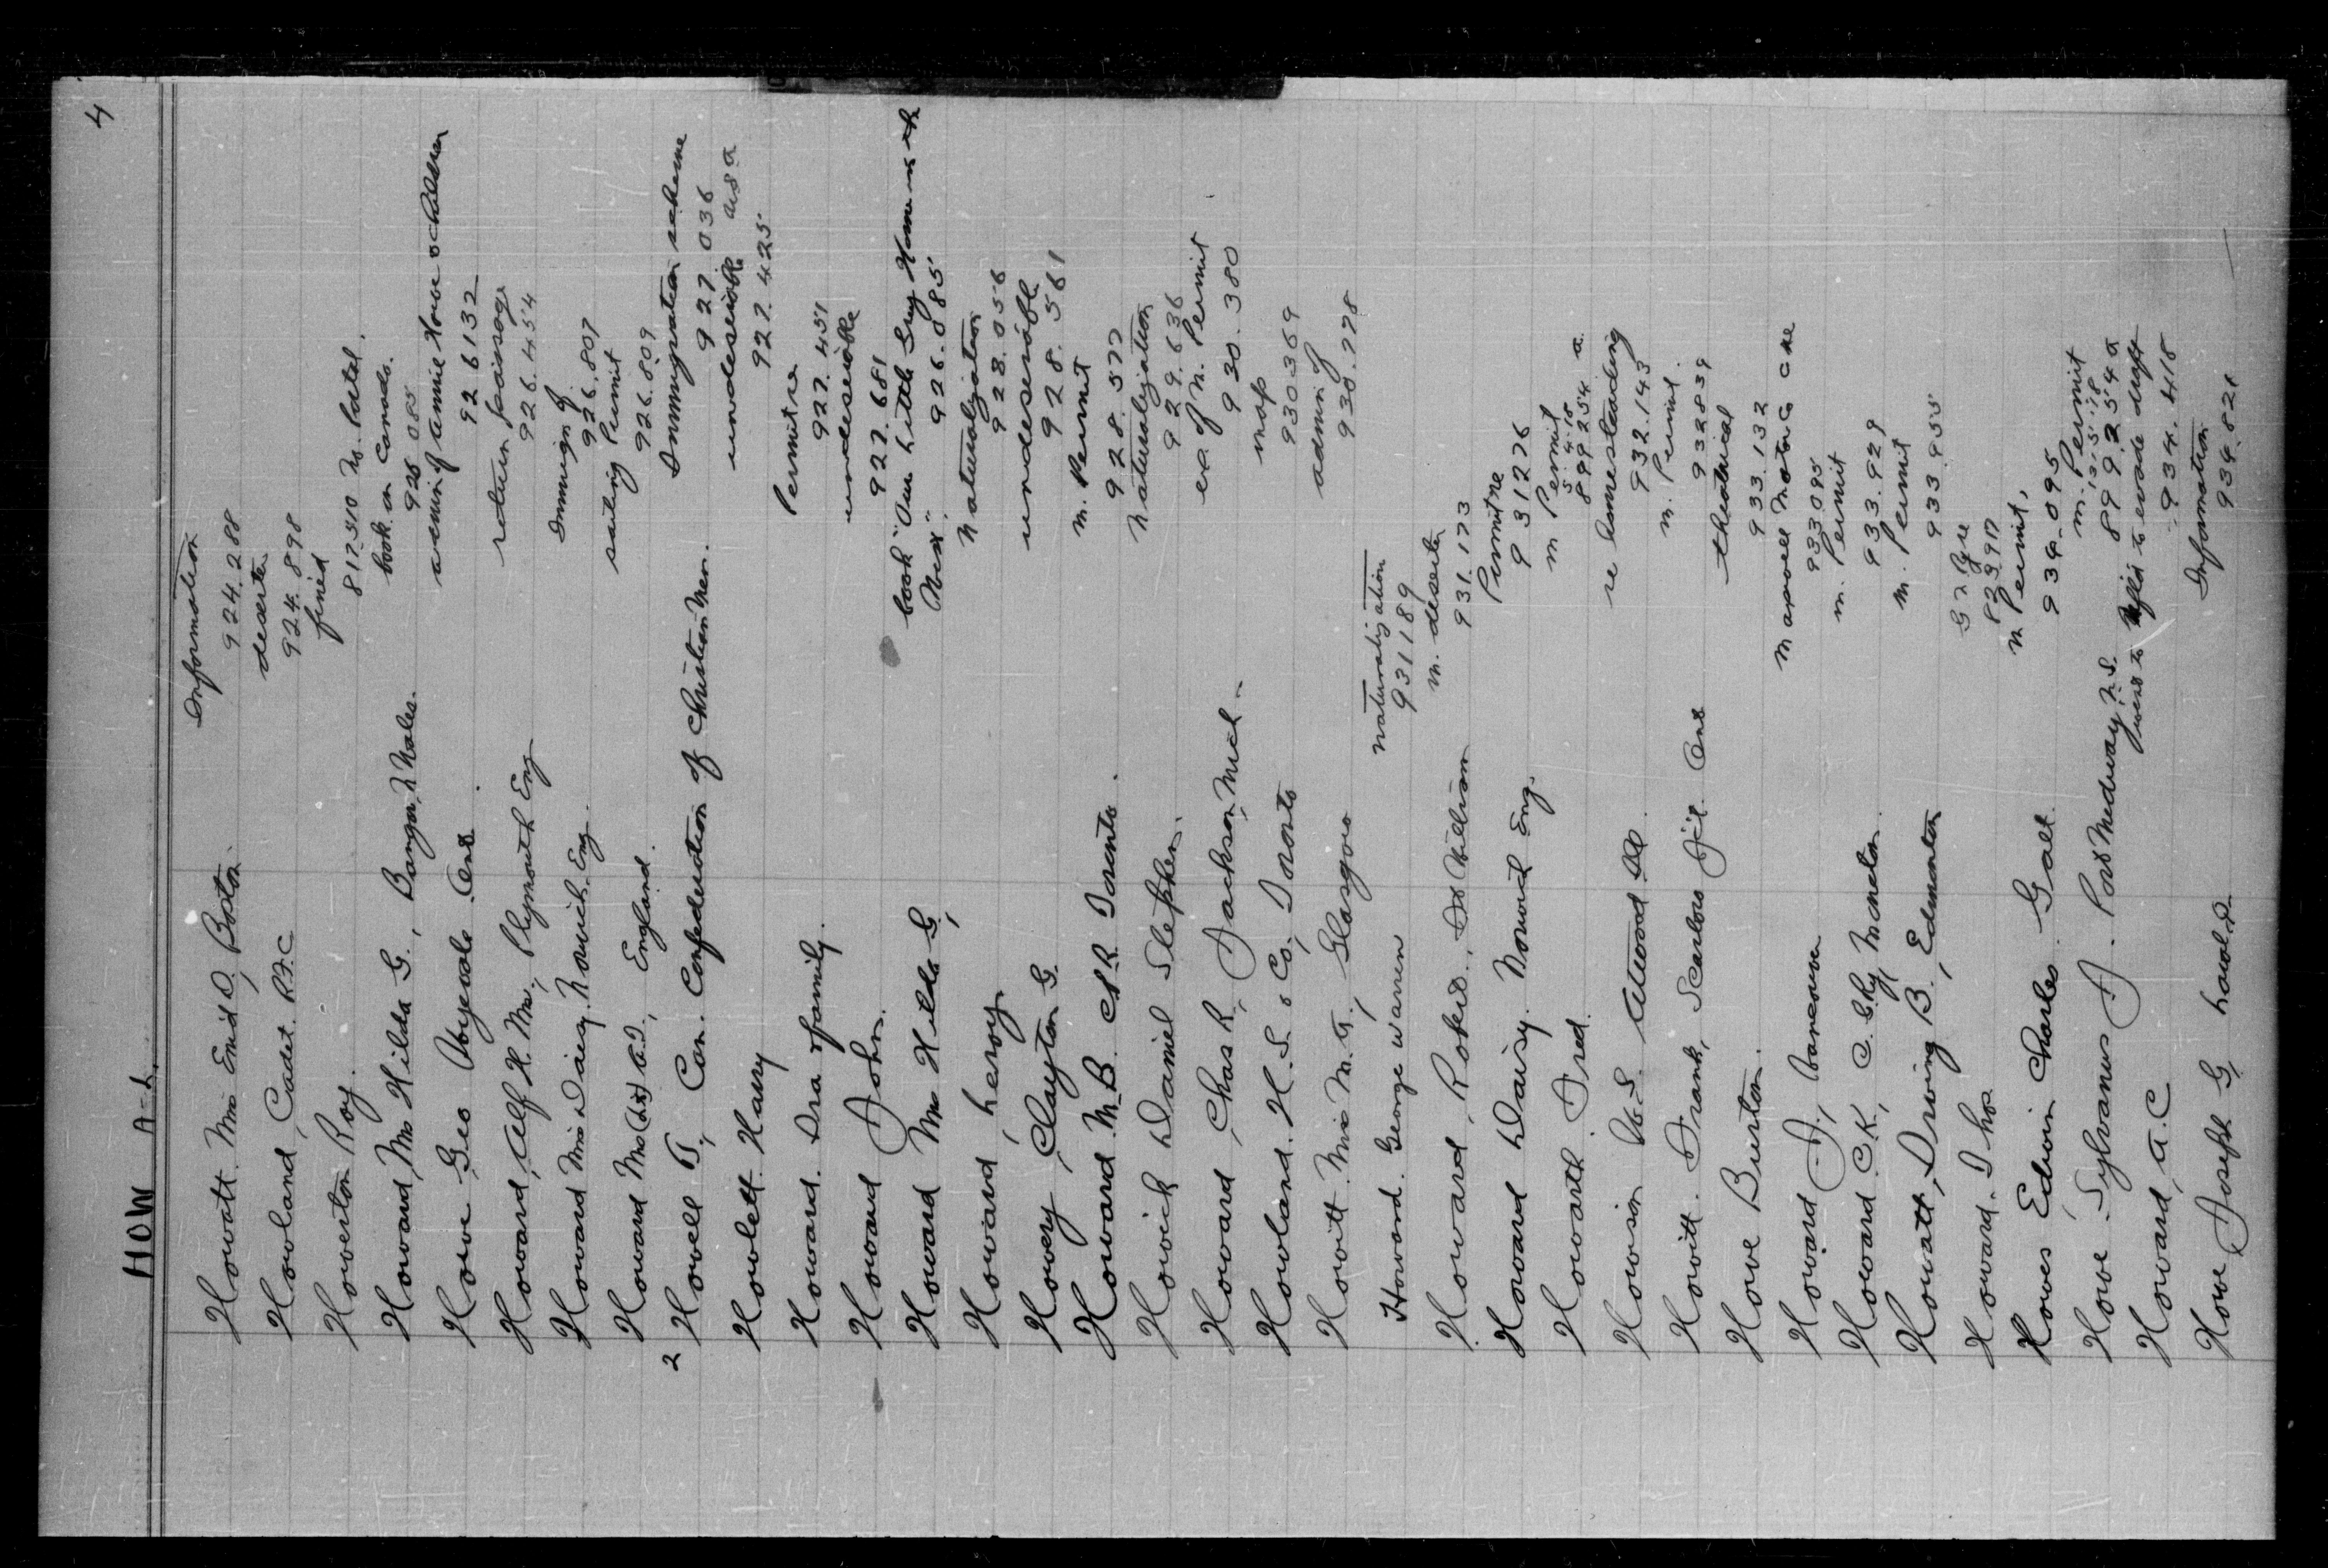 4
HOW A-L
Howatt Miss Enid D, Boston. Information
924.288
Howland, Cadet. R.F.C deserter
924.898
Howerton Roy. fined
817310 No. Patal.
Howard, Mrs Hilda G., Bangor, N Wales. book on Canada.
925 085
Howe, Geo Abyevale Ont. admin of Annie Howe & children
926132
Howard, Alf H. Mrs., Plymouth Eng return passage
926.454
Howard Miss Daisy. Norwich. Eng. Immign of
926.807
Howard Mrs A.J., England. sailing Permit
926.809
2 Howell T, Can. Confederation of Christian Men. Immigration scheme
927.036
Howlett. Harry undesirable
927.425
Howard. Ira & family. Permit re
927.451
Howard John. undesirable
927.681
Howard Mrs Hilda G, book "Our Little Grey Home in the
West". 926.085
Howard, Leroy. Naturalization
928.056
Howey, Clayton G. undesirable
928.561
Howard M.B. CPR. Toronto. M. Permit
928.577
Howick Daniel Stephen. Naturalization
929.636
Howard, Chas R, Jackson, Mich- ex of M. Permit
930.380
Howland. H.S. & Co, Toronto map
930369
Howitt. Miss M.G., Glasgow admin of
930.778
Howard. George Warren naturalization
931189
Howard, Robert., Ft William m. deserter
931.173
Howard Daisy. Norwich Eng. Permit re
931276
Howarth. Fred. M Permit
5.4.18
899254 a
Howison W.S. Atwood re homesteading
932.143
Howitt. Frank, Scarboro Jct. Ont m. Permit.
932839
Howe Burton. theatrical
933.132
Howard J, Vancouver
933095
Howard. C.K., C.G.Ry Moncton. m. Permit
933.929
Howatt, Irving B., Edmonton M. Permit
933.955
Howard. Thos
823917
Howes Edwin Charles. Galt. M Permit,
934.095
Howe. Sylvanus J. Port Medway, N.S. m. Permit
13.5.18
899254 a
Howard, A.C went to to evade draft
934.418
Howe Joseph G Information
934.821